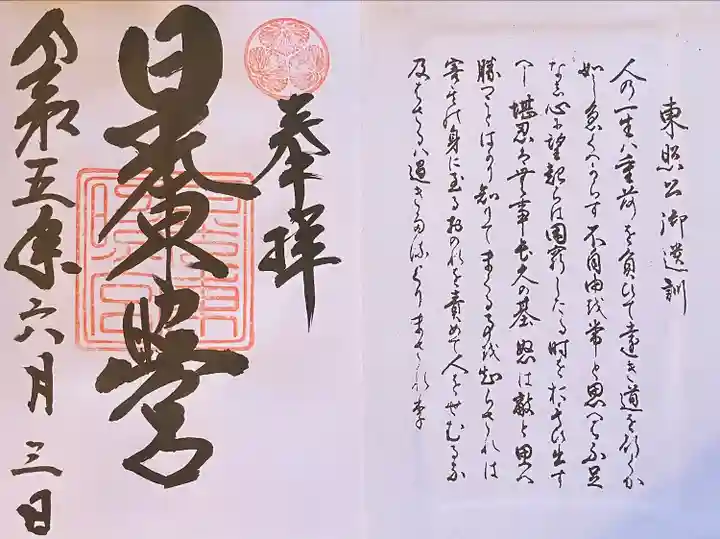 奉拝
日光東照宮
令和五年六月三日
東照公御遺訓
人の一生ハ重荷を負ひて遠き道を行くか
如し急くへからす不自由を常と思へは不足
なし心に望起らは困窮したる時を思ひ出す
へし堪忍は無事長久の基怒は敵と思へ
勝つことはかり知りてまくる事を知らされは
害其の身に至るおのれを責めて人をせむるな
及はさるハ過きたるよりまされり